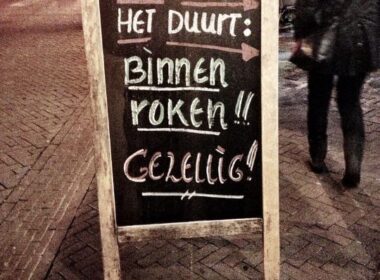 HET DUURT:
BINNEN
ROKEN!!
GEZELLIG!